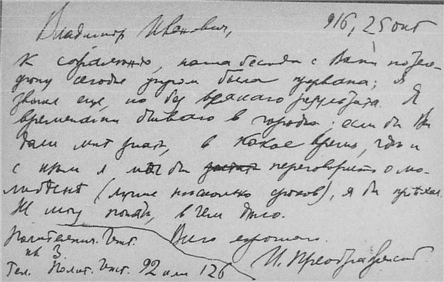 Владимир Иванович, 916, 25 окт
К сожалению, наша беседа с Вами по теле-
фону сегодня утром была прервана; я
звонил еще, но без всякаго результата. Я
временами бываю в городе; если бы Вы
дали мне знать, в какое время, где и
с кем я мог бы переговорить о мо-
(лучше несколько сроков), я бы приехал.
Не могу понять, в чем дело.
Политехнич. Инст. Всего хорошего.
кв 3. И. Преображенский
Тел. Полит. Инст. 92 или 126